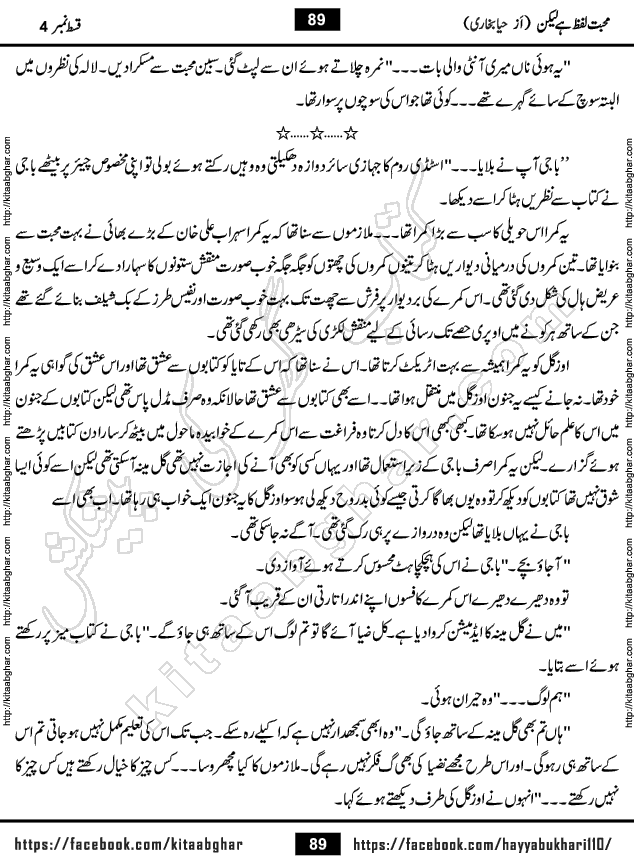 محبت لفظ ہے لیکن (از حیا بخاری) 89 قسط نمبر 4
"یہ ہوئی ناں میری آنٹی والی بات۔۔۔" نمرہ چلاتے ہوئے ان سے لپٹ گئی۔ سبین محبت سے مسکرا دیں۔ لالہ کی نظروں میں
البتہ سوچ کے سائے گہرے تھے۔۔۔ کوئی تھا جو اس کی سوچوں پر سوار تھا۔
☆......☆......☆
"باجی آپ نے بلایا۔۔۔" اسٹڈی روم کا جہازی سائز دروازہ دھکیلتی وہ وہیں رکتے ہوئے بولی تو اپنی مخصوص چیئر پر بیٹھے باجی
نے کتاب سے نظریں ہٹا کر اسے دیکھا۔
یہ کمرا اس حویلی کا سب سے بڑا کمرا تھا۔۔۔ ملازموں سے سنا تھا کہ یہ کمرا سہراب علی خان کے بڑے بھائی نے بہت محبت سے
بنوایا تھا۔ تین کمروں کی درمیانی دیواریں ہٹا کر تینوں کمروں کی چھتوں کو جگہ جگہ خوب صورت منقش ستونوں کا سہارا دے کر اسے ایک وسیع و
عریض ہال کی شکل دی گئی تھی۔ اس کمرے کی ہر دیوار پر فرش سے چھت تک بہت خوب صورت اور نفیس طرز کے بک شیلف بنائے گئے تھے
جن کے ساتھ ہر کونے میں اوپری حصے تک رسائی کے لیے منقش لکڑی کی سیڑھی بھی رکھی گئی تھی۔
اوزگل کو یہ کمرا ہمیشہ سے بہت اٹریکٹ کرتا تھا۔ اس نے سنا تھا کہ اس کے تایا کو کتابوں سے عشق تھا اور اس عشق کی گواہی یہ کمرا
خود تھا۔ نہ جانے کیسے یہ جنون اوزگل میں منتقل ہوا تھا۔۔ اسے بھی کتابوں سے عشق تھا حالانکہ وہ صرف مڈل پاس تھی لیکن کتابوں کے جنون
میں اس کا علم حائل نہیں ہو سکا تھا۔ کبھی کبھی اس کا دل کرتا وہ فراغت سے اس کمرے کے خوابیدہ ماحول میں بیٹھ کر سارا دن کتابیں پڑھتے
ہوئے گزارے۔ لیکن یہ کمرا صرف باجی کے زیر استعمال تھا اور یہاں کسی کو بھی آنے کی اجازت نہیں تھی گل مینہ آسکتی تھی لیکن اسے کوئی ایسا
شوق نہیں تھا کتابوں کو دیکھ کر تو وہ یوں بھاگا کرتی جیسے کوئی بدروح دیکھ لی ہو سو اوزگل کا یہ جنون ایک خواب ہی رہا تھا۔ اب بھی اسے
باجی نے یہاں بلایا تھا لیکن وہ دروازے پر ہی رک گئی تھی۔ آگے نہ جاسکی تھی۔
"آجاؤ بچے۔" باجی نے اس کی ہچکچاہٹ محسوس کرتے ہوئے آواز دی۔
تو وہ دھیرے دھیرے اس کمرے کا فسوں اپنے اندر اتارتی ان کے قریب آگئی۔
"میں نے گل مینہ کا ایڈمیشن کروا دیا ہے۔ کل ضیا آئے گا تو تم لوگ اس کے ساتھ ہی جاؤ گے۔" باجی نے کتاب میز پر رکھتے
ہوئے اسے بتایا۔
"ہم لوگ۔۔۔" وہ حیران ہوئی۔
"ہاں تم بھی گل مینہ کے ساتھ جاؤ گی۔" وہ ابھی سمجھدار نہیں ہے کہ اکیلے رہ سکے۔ جب تک اس کی تعلیم مکمل نہیں ہو جاتی تم اس
کے ساتھ ہی رہو گی۔ اور اس طرح مجھے نضیا کی بھی گ فکر نہیں رہے گی۔ ملازموں کا کیا مچھر وسا۔۔۔ کس چیز کا خیال رکھتے ہیں کس چیز کا
نہیں رکھتے۔۔۔" انہوں نے اوزگل کی طرف دیکھتے ہوئے کہا۔
http://kitaabghar.com http://kitaabghar.com http://kitaabghar.com http://kitaabghar.com http://kitaabghar.com http://kitaabghar.com
http://kitaabghar.com http://kitaabghar.com http://kitaabghar.com http://kitaabghar.com http://kitaabghar.com http://kitaabghar.com
کتاب گھر کی پیشکش
kitaabghar.com
https://facebook.com/kitaabghar 89 https://facebook.com/hayyabukhari110/